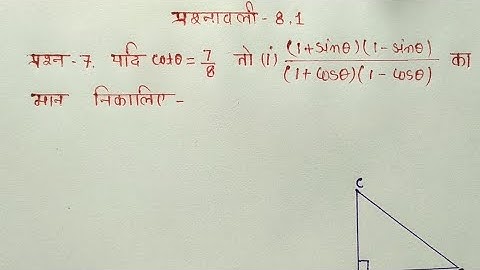 प्रश्नावली - 8.1
प्रश्न - 7. यदि cotθ = 7/8 तो (i) (1+sinθ)(1-sinθ)/(1+cosθ)(1-cosθ) का
मान निकालिए -
C